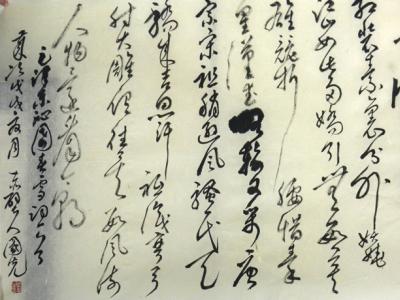 紅裝素裹分外妖嬈
江山如此多嬌引無數英
雄競折腰惜秦
皇漢武略輸文采唐
宗宋祖稍遜風騷一代天
驕成吉思汗祇識彎弓
射大雕俱往矣數風流
人物還看今朝
毛澤東沁園春雪詞一首
歲次戊戌